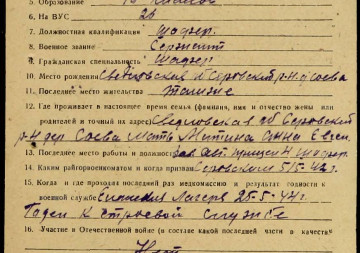 5. Образование 10 классов
6. На ВУС 26
7. Должностная квалификация шофер.
8. Военное звание Сержант
9. Гражданская специальность Шафер
10. Место рождения Свердловская Серовский р-н д Соева
11. Последнее место жительства также
12. Где проживает в настоящее время семья (фамилия, имя и отчество жены или
родителей и точный их адрес) Свердловская об Серовский
р-н дер Соева мать Митина Анна Евген
13. Последнее место работы и должность зав. шофер.
14. Каким райгорвоенкоматом и когда призван Серовским 42 г.
15. Когда и где проходил последний раз медкомиссию и результат годности к
военной службе Лагеря 25-5-44 г.
Годен к строевой службе
16. Участие в Отечественной войне (в составе какой последней части в качестве
Нет